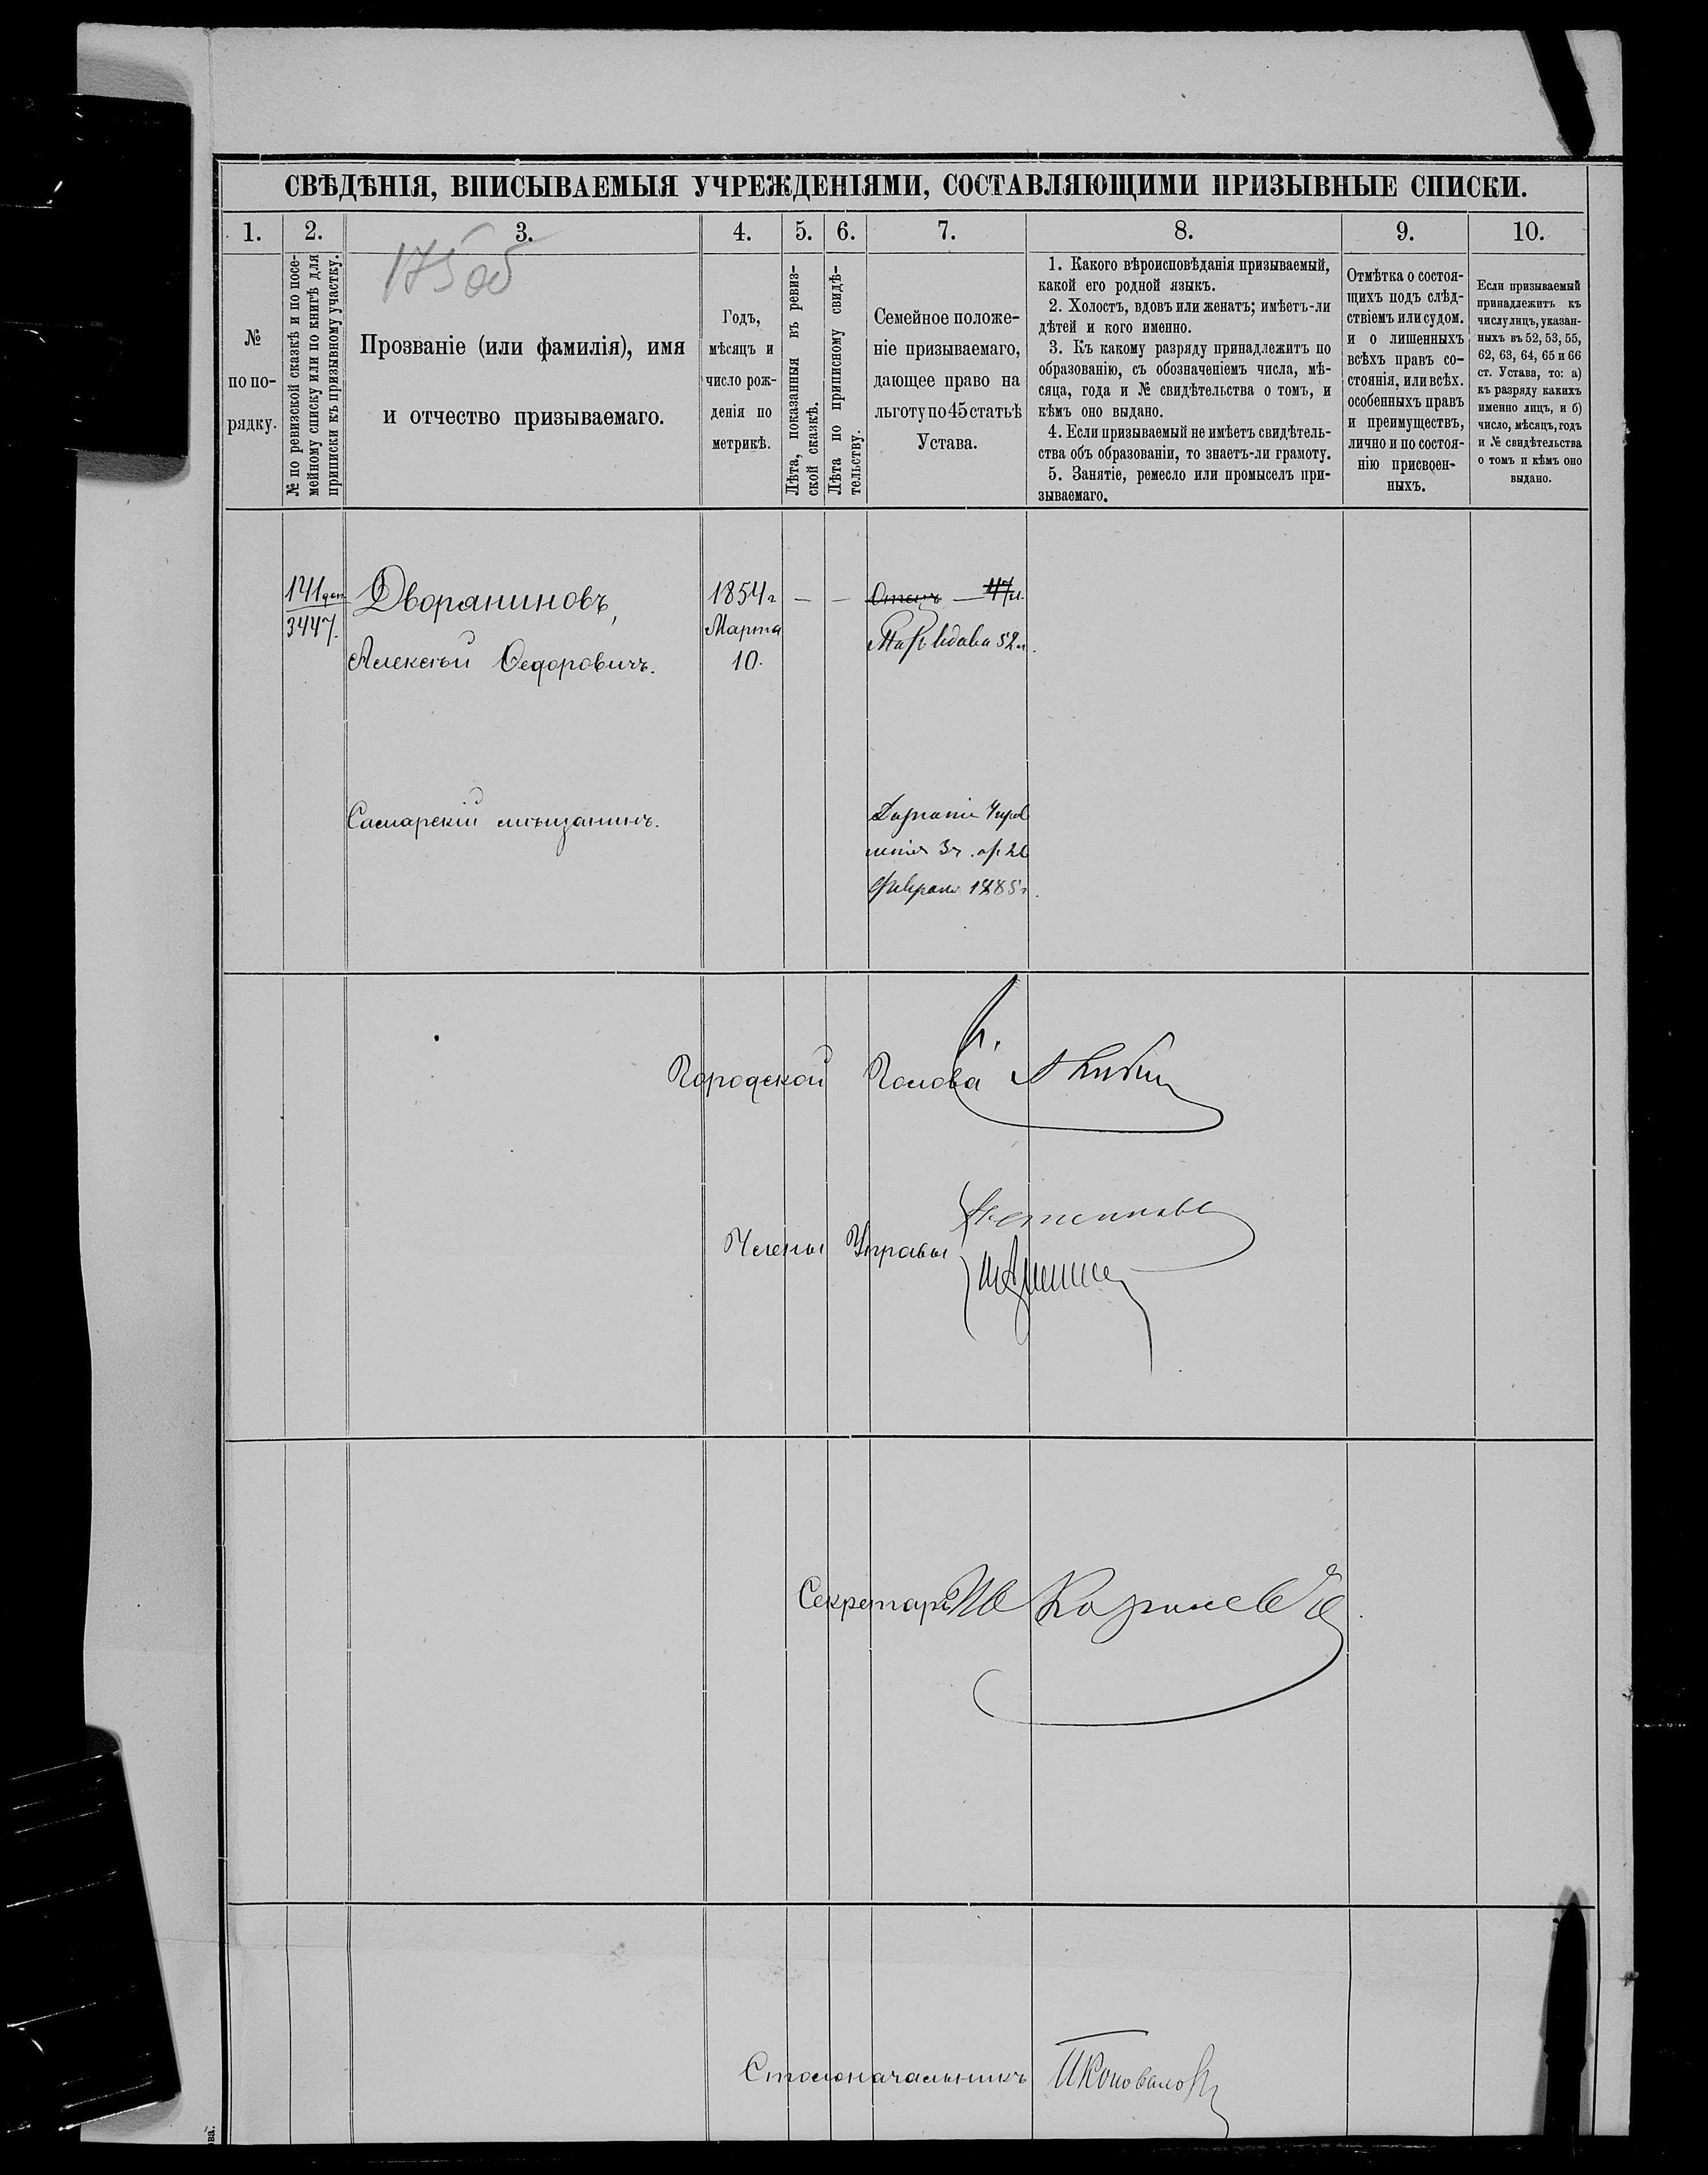 СВѢДѢНІЯ, ВПИСЫВАЕМЫЯ УЧРЕЖДЕНІЯМИ, СОСТАВЛЯЮЩИМИ ПРИЗЫВНЫЕ СПИСКИ.
1. 2. 3. 4. 5. 6. 7. 8. 9. 10.
175 об
№
по по-
рядку.
№ по ревизской сказкѣ и по посе-
мейному списку или по книгѣ для
приписки къ призывному участку.
Прозваніе (или фамилія), имя
и отчество призываемаго.
Годъ,
мѣсяцъ и
число рож-
денія по
метрикѣ.
Лѣта, показанныя въ ревиз-
ской сказкѣ.
Лѣта по приписному свидѣ-
тельству.
Семейное положе-
ніе призываемаго,
дающее право на
льготу по 45 статьѣ
Устава.
1. Какого вѣроисповѣданія призываемый,
какой его родной языкъ.
2. Холостъ, вдовъ или женатъ; имѣетъ-ли
дѣтей и кого именно.
3. Къ какому разряду принадлежитъ по
образованію, съ обозначеніемъ числа, мѣ-
сяца, года и № свидѣтельства о томъ, и
кѣмъ оно выдано.
4. Если призываемый не имѣетъ свидѣтель-
ства объ образованіи, то знаетъ-ли грамоту.
5. Занятіе, ремесло или промыселъ при-
зываемаго.
Отмѣтка о состоя-
щихъ подъ слѣд-
ствіемъ или судом.
и о лишенныхъ
всѣхъ правъ со-
стоянія, или всѣх.
особенныхъ правъ
и преимуществъ,
лично и по состоя-
нію присвоен-
ныхъ.
Если призываемый
принадлежитъ къ
числу лицъ, указан-
ныхъ въ 52, 53, 55,
62, 63, 64, 65 и 66
ст. Устава, то: а)
къ разряду какихъ
именно лицъ, и б)
число, мѣсяцъ, годъ
и № свидѣтельства
о томъ и кѣмъ оно
выдано.
141 доп
3447.
Дворяниновъ,
Алексѣй Федоровичъ.
1854 г
Марта
10.
— —
Отецъ — 47 л.
вдова 52 л.
Самарскій мѣщанинъ.
3 г.
Февраля 1885 г.
Городской Голова
Члены Управы
Секретарь
Столоначальникъ И Коновалов
ва.